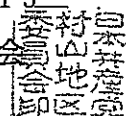 日本共産党
村山地区
委員会印
会